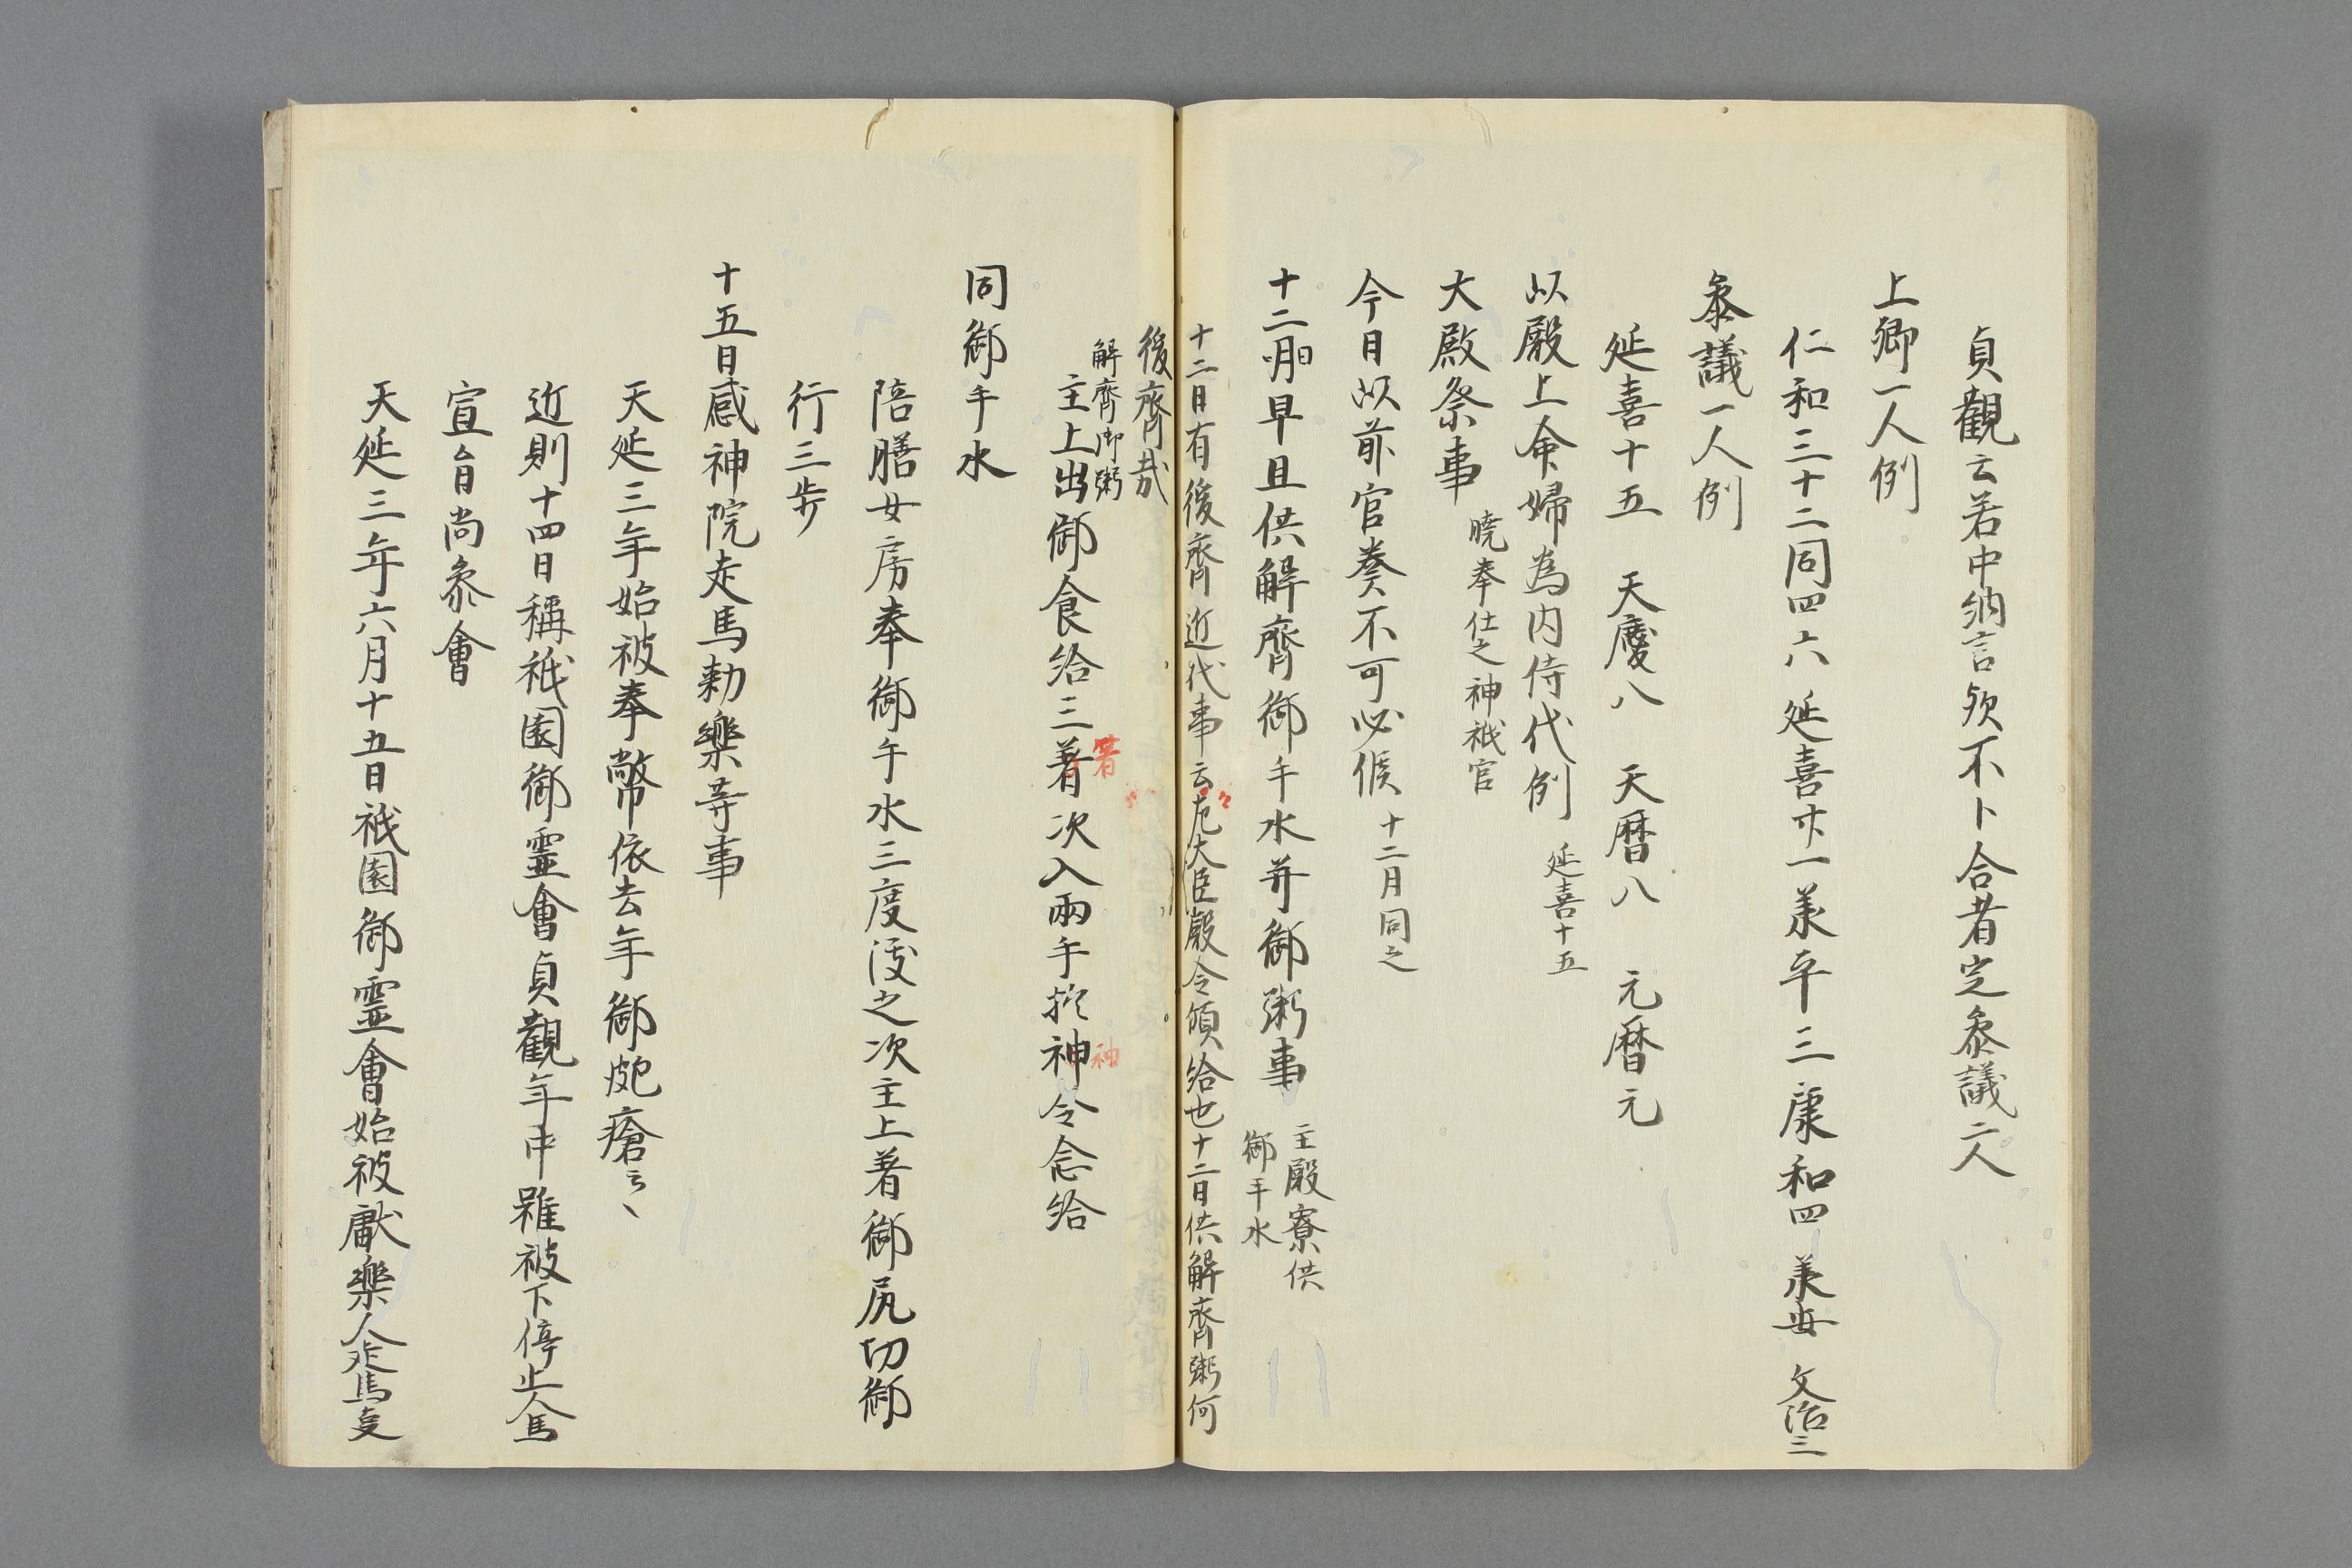 貞觀云若中納言欤不卜合者定叅議二人
上卿一人例
仁和三十二同四六延喜廿一承平三康和四承安文治三
叅議一人例
延喜十五 天慶八 天暦八 元暦元
以殿上命婦為内侍代例 延喜十五
大殿祭事 暁奉仕之神祇官
今日以前官奏不可必候 十二月同之
十二月日早旦供解齊御手水并御粥事 主殿寮供
御手水
十二日有後齊近代事云左大臣殿令傾給也十二日供解齊粥何
後齊哉
解齊御粥
主上出御食給三著次入兩手於神令念給
著
袖
同御手水
陪膳女房奉御手水三度洗之次主上著御尻切御
行三步
十五日感神院走馬勅樂等事
天延三年始被奉幣依去年御皰瘡云々
近則十四日稱祇園御靈會貞觀年中雖被下停止人馬
宣旨尚叅會
天延三年六月十五日祇園御霊會始被獻樂人走馬支